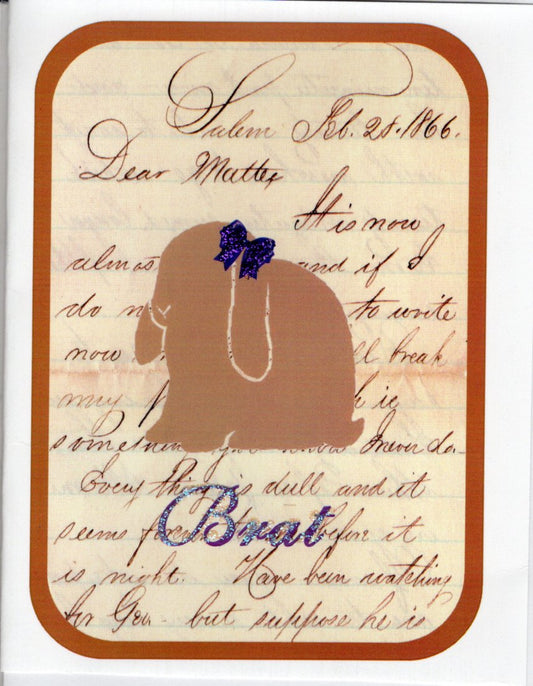 Salem Feb. 28. 1866.
Dear Matter
It is now
almos and if I
do n to write
now ll break
my
something you know I never do.
Every thing is dull and it
Brat
seems before it
is night. Have been watching
for Geo. but suppose he is